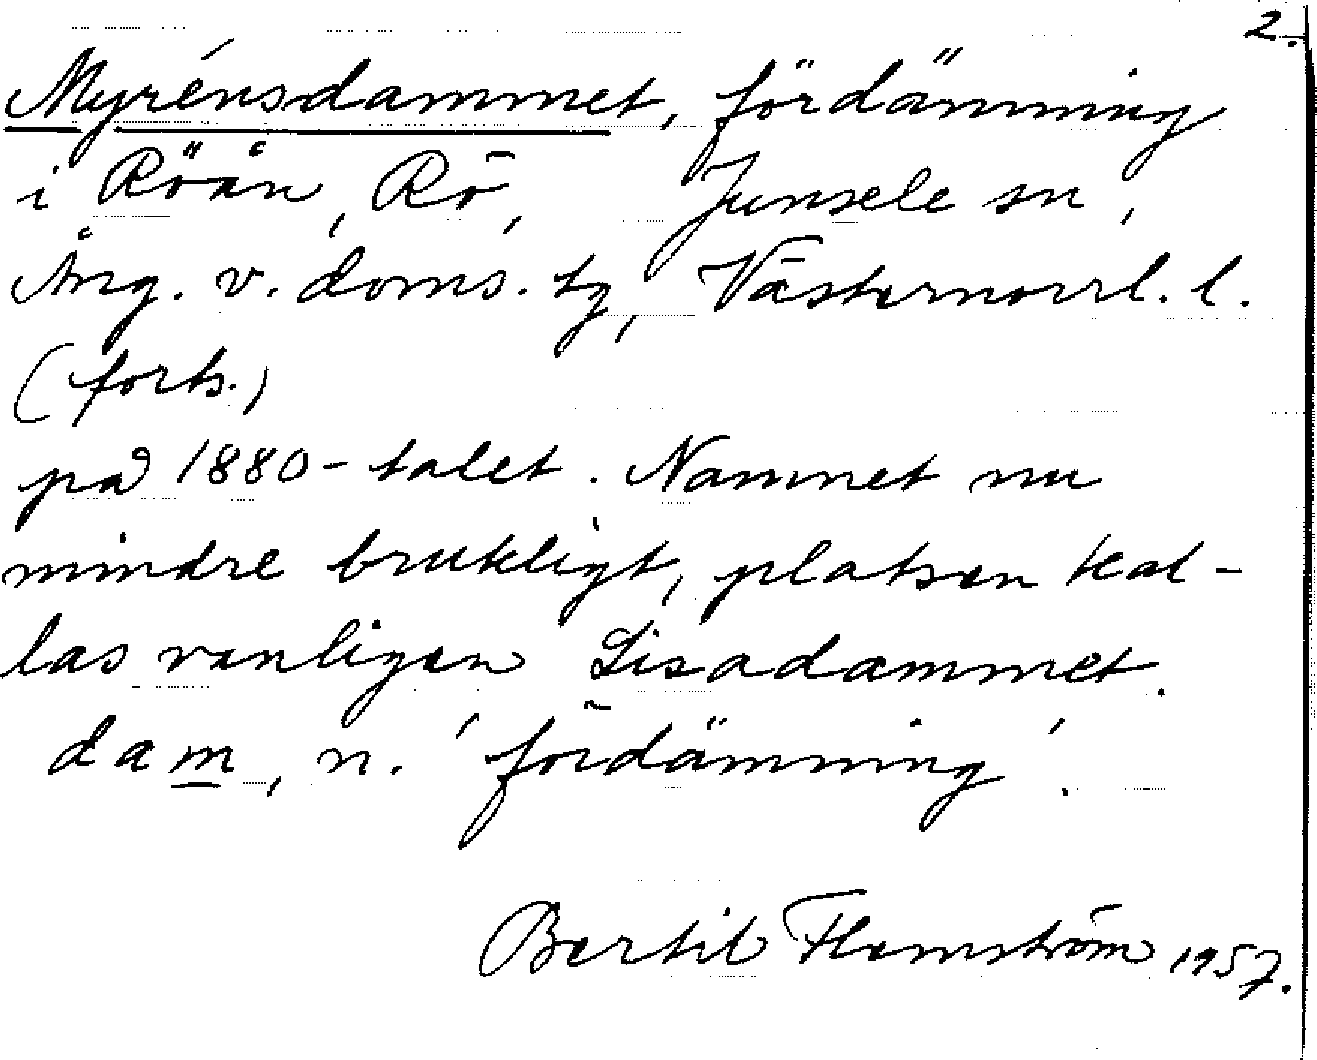 2.
Myrénsdammet, fördämning
i Röån, Rö, Junsele sn,
Ång. v. doms. tg, Västernorrl. l.
(forts.)
på 1880-talet. Namnet nu
mindre brukligt, platsen kal-
las vanligen Lisadammet.
dam, n. 'fördämning'.
Bertil Flemström 1957.